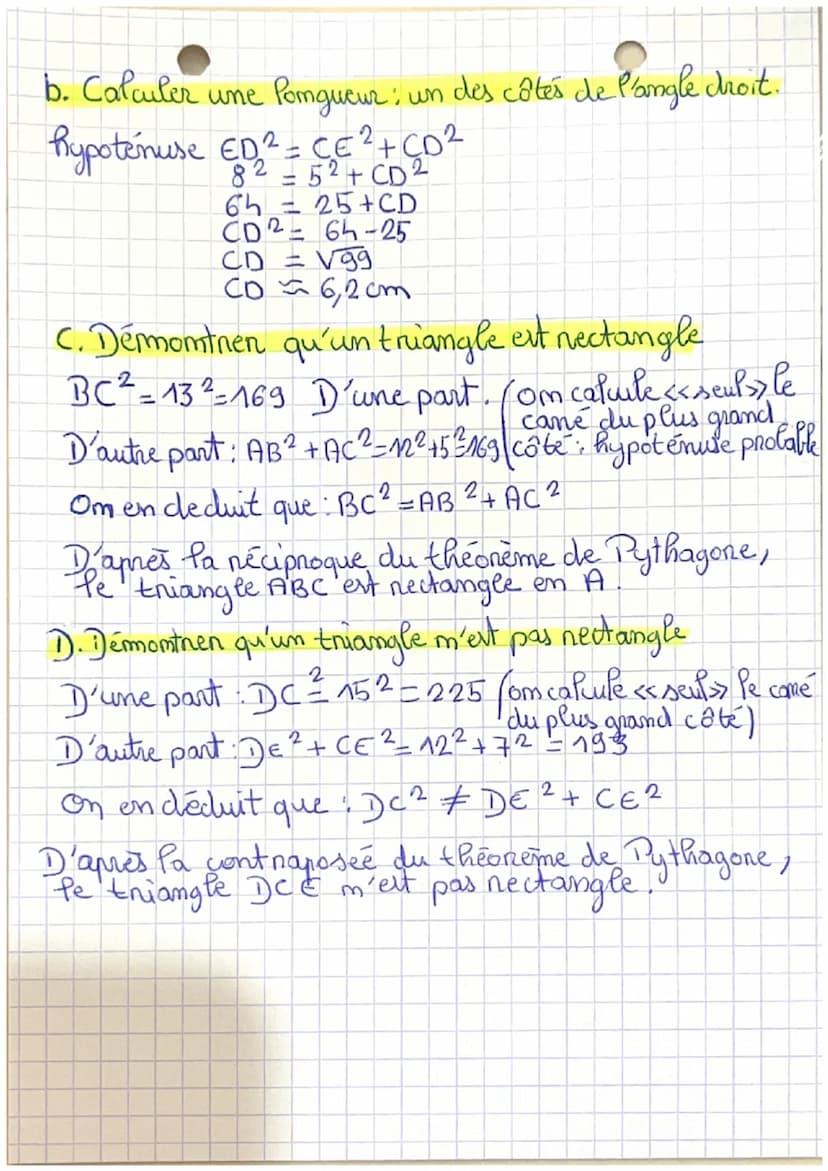 b. Calculer une longueur : un des côtés de l'angle droit.
hypoténuse ED² = CE² + CD²
8² = 5² + CD²
64 = 25 + CD
CD² = 64 - 25
CD = √99
CD ≈ 6,2 cm
C. Démontrer qu'un triangle est rectangle
BC² = 13² = 169 D'une part. (on calcule «seul» le
carré du plus grand
D'autre part : AB² + AC² = 12² + 5² = 169 côté : hypoténuse probable
On en deduit que : BC² = AB² + AC²
D'après la réciproque du théorème de Pythagore,
le triangle ABC est rectangle en A.
D. Démontrer qu'un triangle n'est pas rectangle
D'une part : DC² = 15² = 225 (on calcule «seul» le carré
du plus grand côté)
D'autre part : DE² + CE² = 12² + 7² = 193
On en déduit que : DC² ≠ DE² + CE²
D'après la contraposée du théorème de Pythagore,
le triangle DCE n'est pas rectangle.